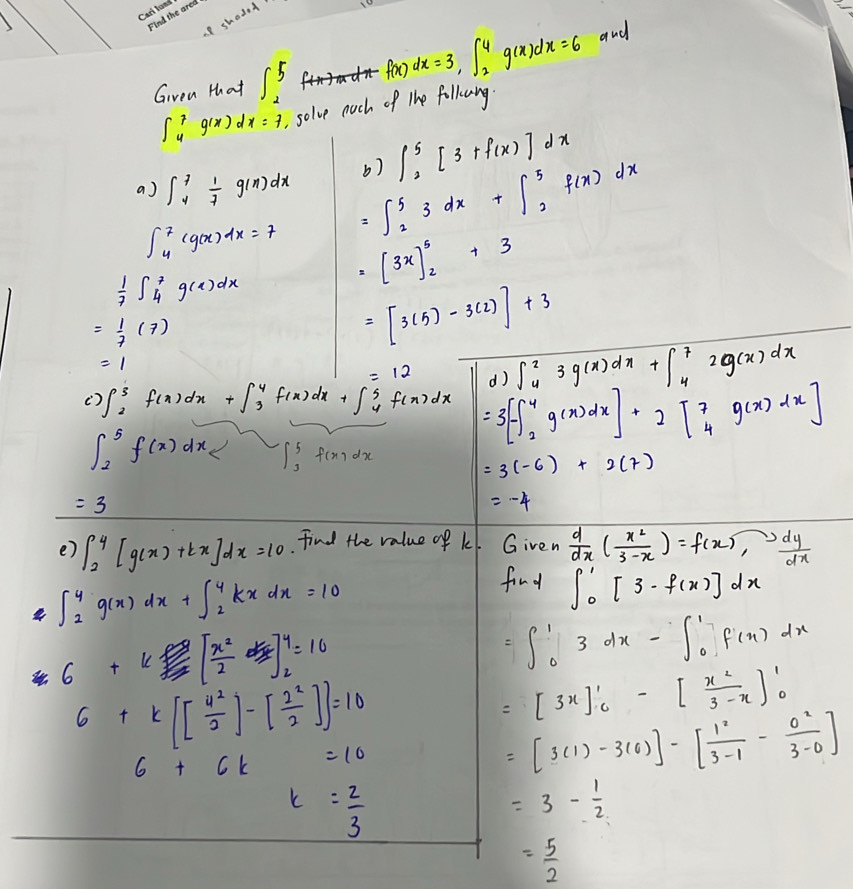 Cari luas
Find the area
of shaded
Given that ∫₂⁵ f(x) dx = 3, ∫₂⁴ g(x)dx = 6 and
∫₄⁷ g(x) dx = 7, solve each of the follwing.
a) ∫₄⁷ 1/7 g(x)dx
∫₄⁷ (g(x)dx = 7
1/7 ∫₄⁷ g(x)dx
= 1/7 (7)
= 1
b) ∫₂⁵ [3 + f(x)] dx
= ∫₂⁵ 3 dx + ∫₂⁵ f(x) dx
= [3x]₂⁵ + 3
= [3(5) - 3(2)] + 3
= 12
c) ∫₂³ f(x)dx + ∫₃⁴ f(x)dx + ∫₄⁵ f(x)dx
∫₂⁵ f(x) dx
∫₃⁵ f(x) dx
= 3
d) ∫₄² 3g(x)dx + ∫₄⁷ 2g(x)dx
= 3[-∫₂⁴ g(x)dx] + 2 [⁷₄ g(x) dx]
= 3(-6) + 2(7)
= -4
e) ∫₂⁴ [g(x) + kx]dx = 10. Find the value of k.
∫₂⁴ g(x) dx + ∫₂⁴ kx dx = 10
6 + k [x²/2]₂⁴ = 10
6 + k [[4²/2] - [2²/2]] = 10
6 + 6k = 10
k = 2/3
Given d/dx (x²/3-x) = f(x), → dy/dx
find ∫₀¹ [3 - f(x)] dx
= ∫₀¹ 3 dx - ∫₀¹ f(x) dx
= [3x]₀¹ - [x²/3-x]₀¹
= [3(1) - 3(0)] - [1²/3-1 - 0²/3-0]
= 3 - 1/2
= 5/2